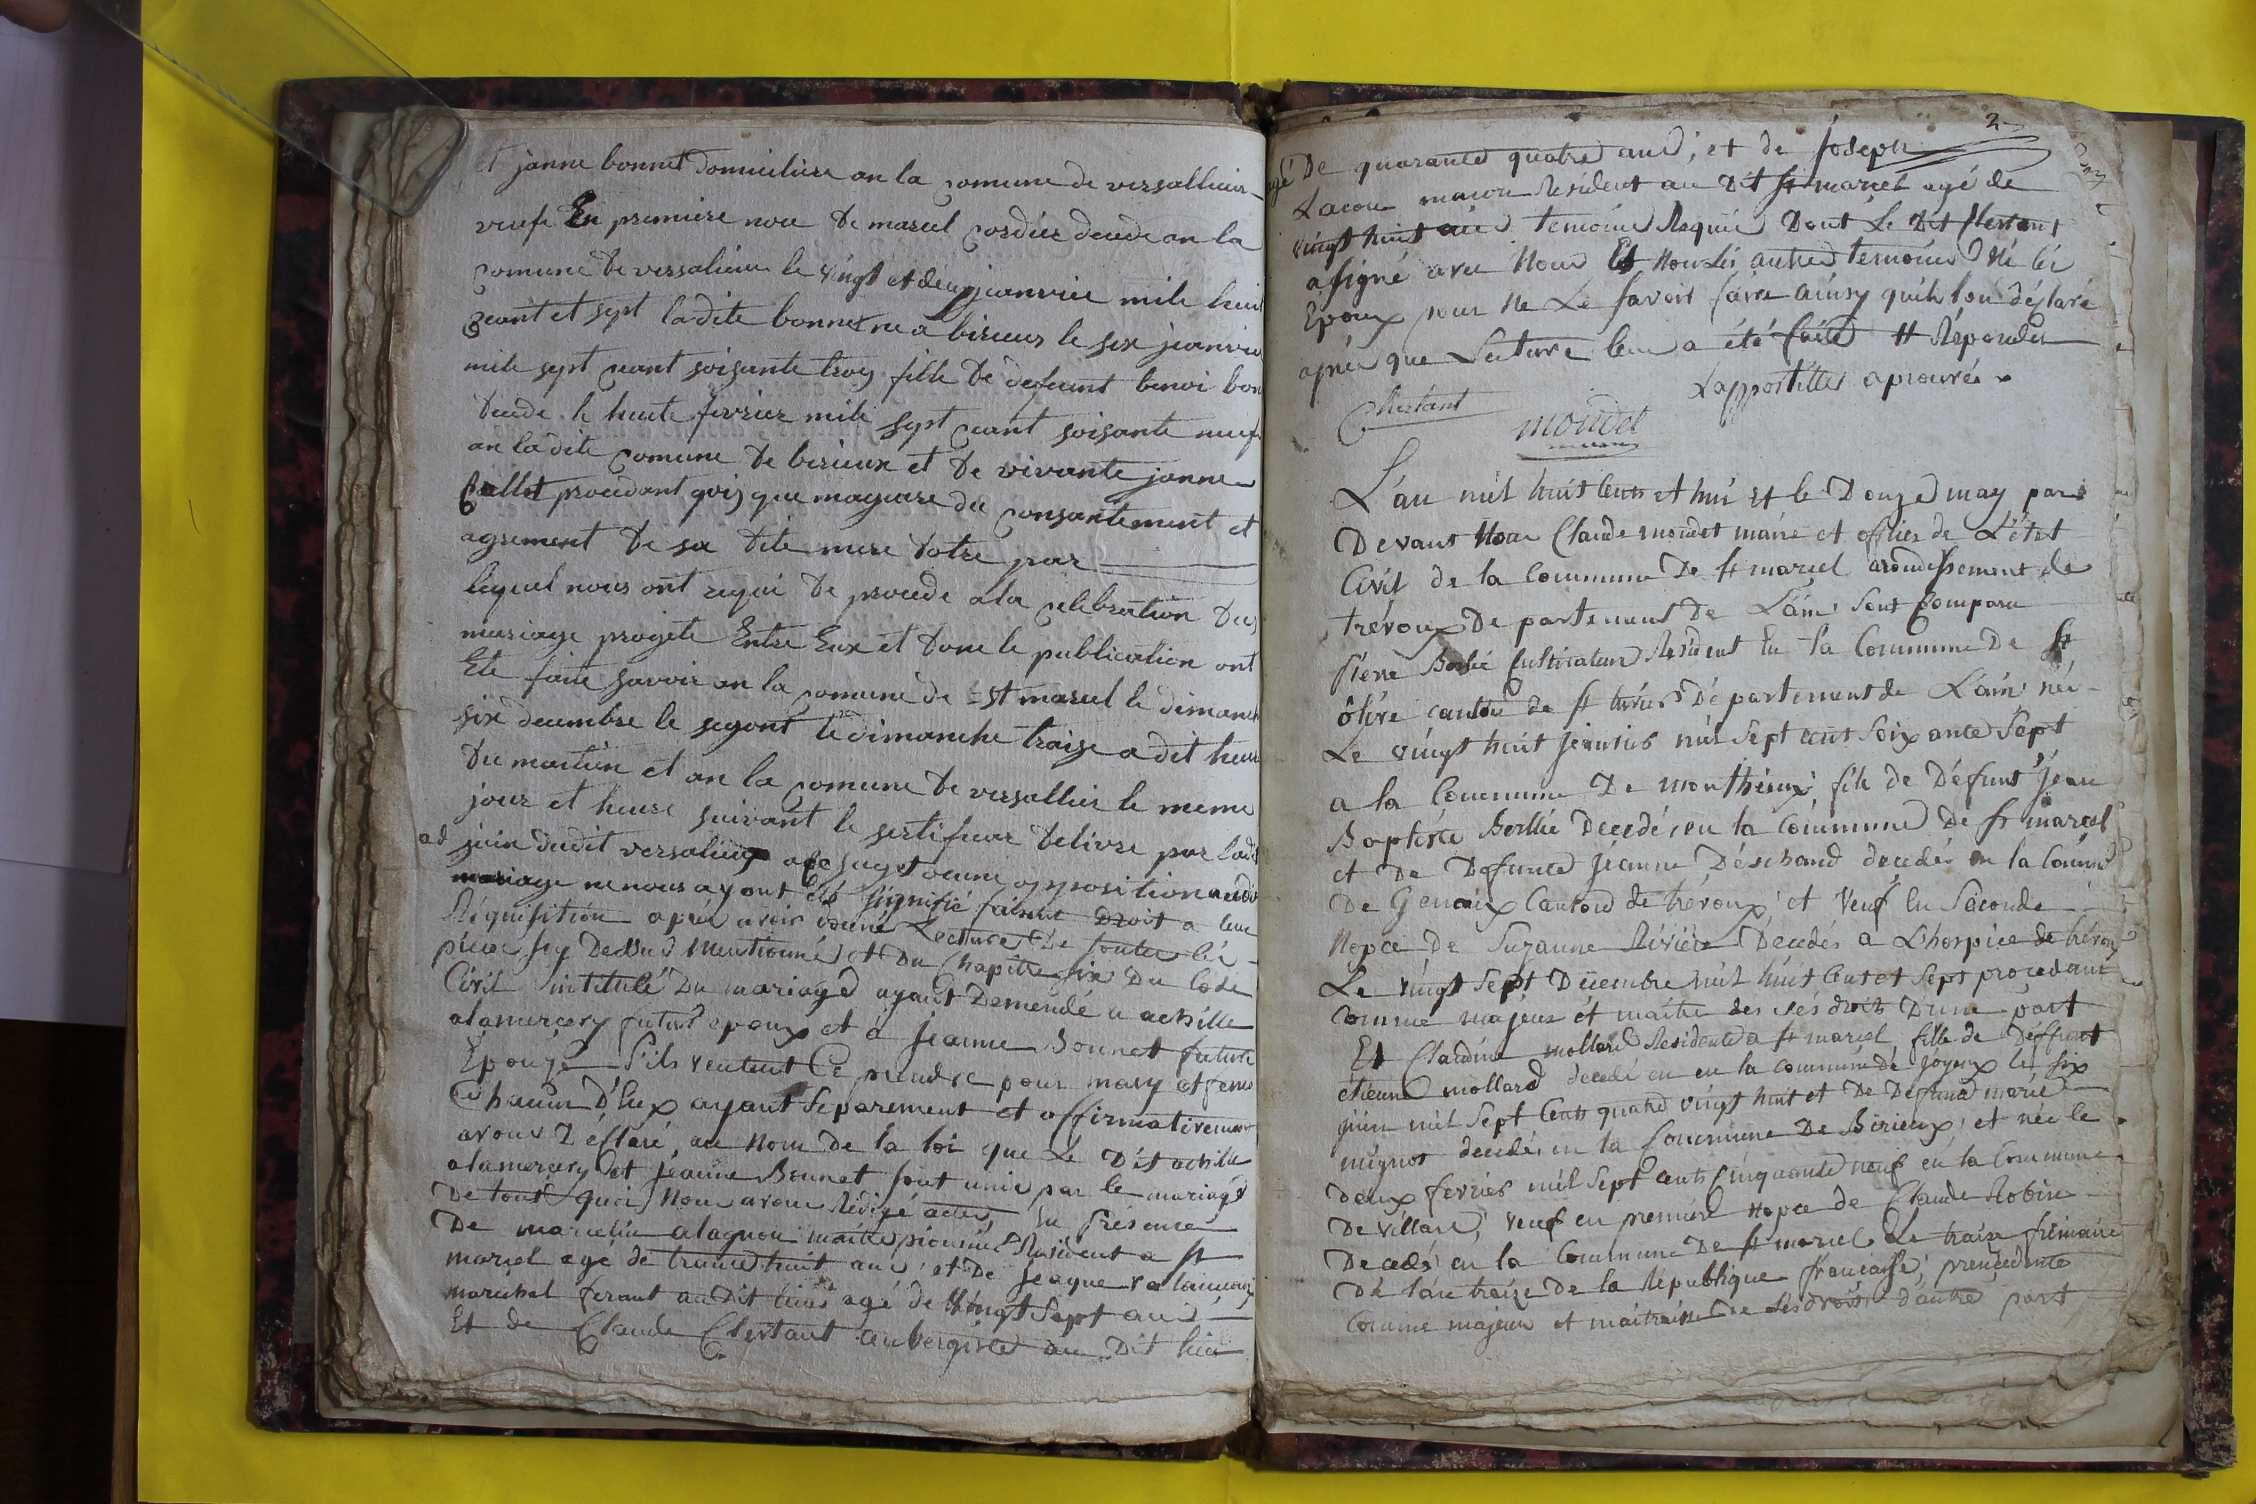 et janne bonnet domiciliere an la comune de versallieu
veufe En premiere noce de marcel cordier decede an la
comune de versalieu le vingt et deux jeanvier mile huit
ceant et sept ladite bonnet ne a birieux le six jeanvier
mile sept ceant soisante troy fille de defeunt benoi bon
decede le huite fevrier mile sept ceant soisante neuf
an ladite comune de birieux et de vivante janne
Caillet procedant quis que mageure du consantement et
agrement de sa dite mere dotre par
lequel nous ont requi de procede a la celebration du
mariage progete Entre Eux et done le publication ont
Ete faite savoir an la comune de St marcel le dimanche
six decembre le segont le dimanche traize a dit heure
du maitin et an la comune de versallieu le meme
jour et heure suivant le sertificas delivre par lad
ad join dudit versalieux aucune opposition audit
mariage ne nous ayant été signifié faisant Droit a leur
Réquisition après avoir donné Lecture De toutes les
pièces sy Dessus Mentionné et Du Chapitre six Du Code
Civil intitulé Du mariage ayant Demendé a achille
alamercery futur epoux et a jeanne Bonnet future
Epouze S'ils veulent Ce prendre pour mary et feme
Chacun D'Eux ayant Séparement et affirmativement
avons Déclaré au nom de la loi que Le Dit achille
alamercery et jeanne Bonnet sont unie par le mariage
De tout quoi Nous avons Rédigé acte, En présence
De marcelin alagnou maitre Résident a St
marcel agé de trante huit ans, et De jeaque
maréchal ferant au Dit lieu agé de Vingt Sept ans
Et de Claude Clertant aubergiste au Dit lieu
2
agé De quarante quatre ans, et de Joseph
Lacou macon Resident au Dit St marcel agé de
vingt huit ans temoins Requis Dont Le Dit Clertant
a signé avec Nous Et Non les autres temoins Ni les
Epoux pour ne Le savoir faire ainsy quils l'on déclaré
après que Lecture leur a été faite # Réponder
Lappostilles aprouvés
Clertant
moudet
L'an mil huit Cents et huit et le Douze may par
Devant Nous Claude moudet maire et officier de L'état
Civil de la Commune De St marcel arondissement de
trévoux Departement De L'ain Sont Comparu
Pierre Berlié Cultivateur Résident En la Commune De St
Olive canton de St trivier Département de L'ain né
Le vingt huit janvier mil Sept cent Soixante Sept
a la Commune De monthieux, fils de Défunt Jean
Baptiste Berllié Decedé en la Commune De St marcel
et De Defunte Jeanne Déschamd decedée en la Commune
De Genaix Canton de trévoux, et Veuf En Seconde
Nopce De Suzanne Rivière Decedés a L'hospice de trévoux
Le vingt Sept Décembre mil huit Cent et Sept procedant
Comme majeur et maitre des ses droits D'une part
Et Claudine mollard Résidente a St marcel fille de Deffunt
etienne mollard decedé en en la commune de joyeux le six
juin mil Sept Cents quatre vingt huit et De Defunte marie
mignot decedé en la Commune De Birieux, et née le
Deux fevrier mil Sept cents cinquante neuf en la Commune
De villard, veuf en premiere Nopce de Claude Robin
Decedé en la Commune De St marcel Le traize frimaire
De l'an traize de la République française, proucédente
Comme majeur et maitraisse De Ses droits d'autre part